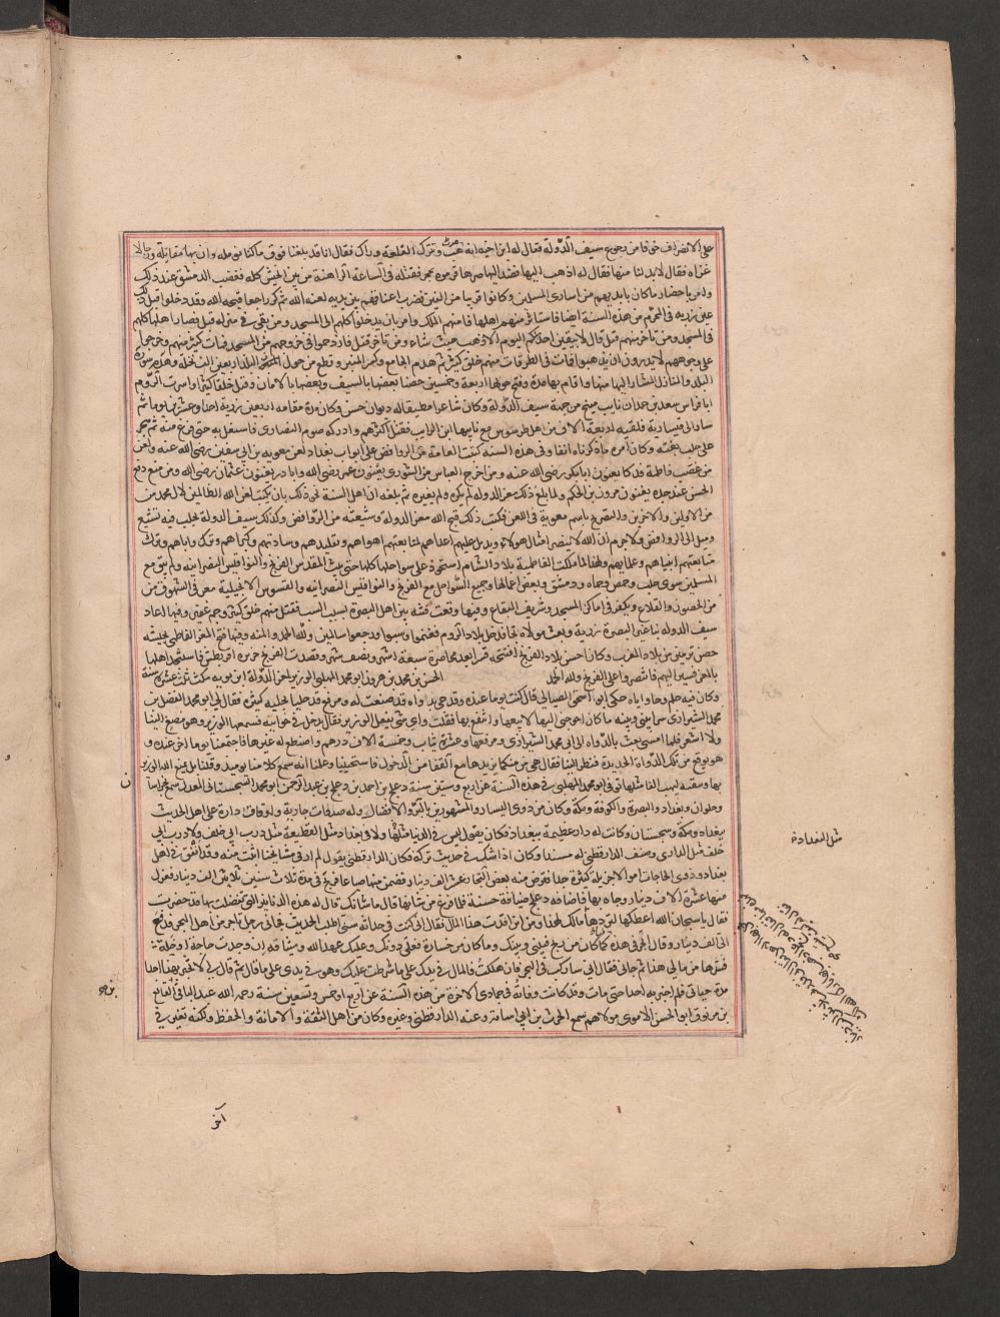 على الانصراف خوفا من رجوع سيف الدولة فقال له ابن اخيه انه وترك القلعة وراك فقال انا قد بلغنا فوق ماكنا نومله وان بها مقاتلة ورجالا
غزاة فقال لابد لنا منها فقال له اذهب اليها فصعد اليها فحاصرها فرموه بحجر فقتله في الساعة الراهنة من بين الجيش كله فغضب الدمستق عند ذلك
وامر باحضار ماكان بايديهم من اسارى المسلمين وكانوا قريبا من الفين فضرب اعناقهم بين يديه لعنه الله ثم كر راجعا قبحه الله وقد دخلوا قبل ذلك
عين زربة في المحرم من هذه السنة ايضا فاستامنهم اهلها فامنهم الملك وامر بان يدخلوا كلهم الى المسجد ومن بقي في منزله قتل فصار اهلها كلهم
في المسجد ومن تاخر منهم قتل ثم قال لا يبقين احد منكم اليوم الا ذهب حيث شاء ومن تاخر قتل فازدحموا في خروجهم من المسجد فمات كثير منهم وخرجوا
على وجوههم لا يدرون اين يذهبوا فمات في الطرقات منهم خلق كثير ثم هدم الجامع وكسر المنبر وقطع من حول البلد اربعين الف نخلة وهدم سور
البلد والمنازل المشار اليها منها واقام بها مدة وفتح حولها اربعة وخمسين حصنا بعضها بالسيف وبعضها بالامان وقتل خلقا كثيرا واسرت الروم
ابا فراس سعيد بن حمدان نايب منبج من جهة سيف الدولة وكان شاعرا مطبقا له ديوان حسن وكان مدة مقامه بعين زربة احدا وعشرين يوما ثم
سار الى قيسارية فلقيه اربعة الاف من اهل طرسوس مع نايبها ابن الزيات فقتل اكثرهم وادركه صوم النصارى فاشتغل به حتى فرغ منه ثم هجم
على حلب بغتة وكان من امره ما ذكرناه انفا وفي هذه السنة كتبت العامة من الروافض على ابواب بغداد لعن معوية بن ابي سفين رضي الله عنه ولعن
من غصب فاطمة فدكا يعنون ابا بكر رضي الله عنه ومن اخرج العباس من الشورى يعنون عمر رضي الله عنه وابا ذر يعنون عثمان رضي الله عنه ومن منع دفن
الحسن عند جده يعنون مرون بن الحكم ولما بلغ ذلك معز الدولة لم ينكره ولم يغيره ثم بلغه ان اهل السنة محوا ذلك بان يكتب لعن الله الظالمين لال محمد من
من الاولين والاخرين والتصريح باسم معوية في اللعن فكتب ذلك قبح الله معز الدولة وشيعته من الروافض وكذلك سيف الدولة بحلب فيه تشيع
وميل الى الروافض ولا جرم ان الله لا ينصر امثال هولاء ويديل عليهم اعداهم لمتابعتهم اهواهم وتقليدهم وسادتهم وكبراهم واباهم وترك
متابعتهم انبياهم وعلمايهم ولهذا لما ملكت الفاطمية بلاد الشام استحوذ على سواحلها كلها حتى بيت المقدس الفرنج والنواقيس النصرانيه ولم يبق مع
المسلمين سوى حلب وحمص وحماه ودمشق وبعض اعمالها وجميع السواحل مع الفرنج والنواقيس النصرانيه والقسوس الانجيلية
من الحصون والقلاع ويكفر في اماكن المسجد وشريف البقاع وفيها وقعت فتنه بين اهل البصرة بسبب السب فقتل منهم خلق كثير وجم غفير وفيها اعاد
سيف الدوله بناء عين زربة وبعث مولاه نجا فدخل بلاد الروم فغنموا وسبوا ورجعوا سالمين ولله الحمد والمنه وفيها فتح المعز الفاطمي
حصن طبرمين من بلاد المغرب وكان احسن بلاد الفرنج افتتحه قسرا بعد محاصرة سبعة اشهر ونصف شهر وقصدت الفرنج جزيرة اقريطش فاستنجد اهلها
بالمعز فسير اليهم فانتصروا على الفرنج ولله الحمد الحسن بن محمد بن هرون ابو محمد المهلبي الوزير لمعز الدولة ابن بويه مكث ثلث عشرة سنة
وكان فيه حلم وحياء واناة حكى ابو اسحق الصابي قال كنت يوما عنده وقد جي بدواة قد صنعت له ومرفع قد حليا بحليه كثيرة فقال لي ابو محمد الفضل بن
محمد الشيرازي سرا بيني وبينه ما كان احوجني اليها لابيعها وانتفع بها فقلت واي شي يفعل الوزير فقال يدخل في فسمعها الوزير وهو مصغ الينا
ولا اشعر فلما امسى بعث بالدواة الى ابي محمد الشيرازي ومرفعها وعشرة ثياب وخمسة الاف درهم واصطنع له غيرها فاجتمعنا يوما اخر عنده و
هو يوقع من تلك الدواة الجديدة فنظر الينا فقال هي من منكما يريدها مع العفا من الدخول فاستحيينا وعلمنا انه سمع كلامنا يوميذ وقلنا بل يمتع الله الوزير
بها ويبقيه ليهب الفا مثلها توفي ابو محمد المهلبي في هذه السنة عن اربع وستين سنة دعلج بن احمد بن دعلج بن عبد الرحمن ابو محمد السجستاني المعدل سمع بخراسان
وحلوان وبغداد والبصرة والكوفة ومكة وكان من ذوي اليسار والمشهورين بالبر والافضال وله صدقات جارية واوقاف دارة على اهل الحديث
ببغداد ومكة وسجستان وكانت له دار عظيمة ببغداد فكان يقول ليس في الدنيا مثلها ولا في بغداد مثل القطيعة مثل درب ابي خلف ولا درب ابي
خلف مثل الداري وصنف الدارقطني له مسندا وكان اذا شك في حديث تركه فكان الدارقطني يقول لم ار في مشايخنا اثبت منه وقد انفق في اهل
بغداد وذوي الحاجات اموالا جزيلة كثيرة جدا فقترض منه بعض التجار عشرة الف دينار فضمن منها صياعا فربح في مدة ثلاث سنين ثلاثين الف دينار فعزل
منها عشرة الاف دينار وجاه بها فاضافه دعلج ضيافة حسنة فلما فرغ من شانها قال ما شانك قال له هذه الدنانير التي تفضلت بها قد حضرت
فقال يا سبحان الله اعطكها لتردها فقال اني كنت في حداثة سني اطلب الحديث فجاني رجل تاجر من اهل البحر فدفع
الى الف دينار وقال اتجر في هذه فما كان من ربح فبيني وبينك وما كان من خسارة فعلي دونك وعليك عهد الله وميثاقه ان وجدت حاجة او خلة
فسدها من مالي هذا ثم جاني فقال اني ساركب في البحر فان هلكت فالمال في يدك على ما شرطت عليك وهو في يدي على ما قال ثم قال لي لا تخبر بهذا احدا
مدة حياتي فلم اخبر به احدا حتى مات وقد كانت وفاته في جمادى الاخرة من هذه السنة عن اربع او خمس وتسعين سنة رحمه الله عبد الباقي بن قانع
بن مرزوق ابو الحسن الاموي مولاهم سمع الحرث بن ابي اسامة وعنه الدارقطني وغيره وكان من اهل الثقة والامانة والحفظ ولكنه تغير في
مثل البغدادة
آخر